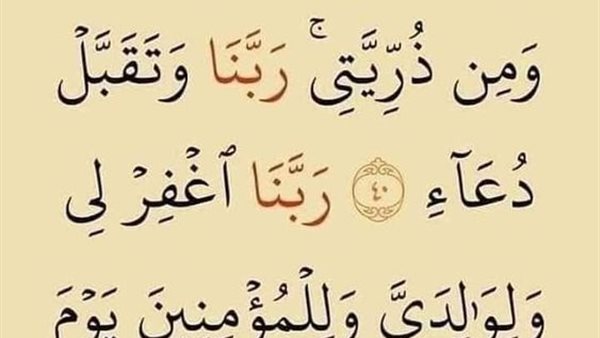 وَمِن ذُرِّيَّتِىۚ رَبَّنَا وَتَقَبَّلۡ
دُعَآءِ ٤٠ رَبَّنَا ٱغۡفِرۡ لِى
وَلِوَٰلِدَىَّ وَلِلۡمُؤۡمِنِينَ يَوۡمَ